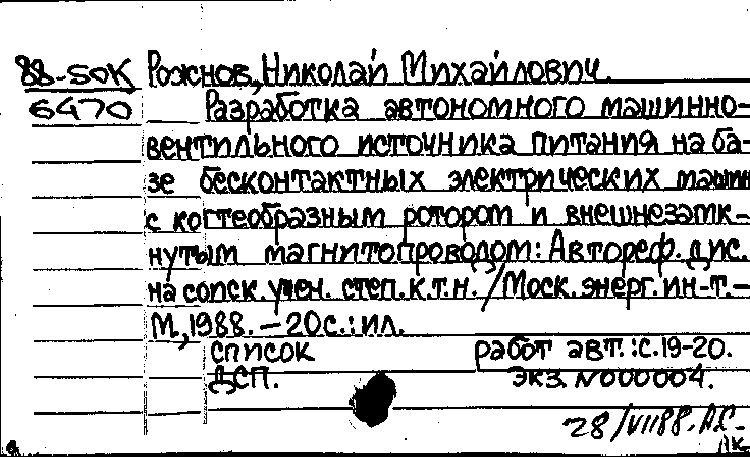 88-50К Рожнов, Николай Михайлович.
6470 Разработка автономного машинно-
вентильного источника питания на ба-
зе бесконтактных электрических машин
с когтеобразным ротором и внешнезамк-
нутым магнитопроводом: Автореф. дис.
на соиск. учен. степ. к.т.н. / Моск. энерг. ин-т. -
М., 1988. - 20с.: ил.
список работ авт.: с. 19-20.
ДСП. Экз. N000004.
28/VII88. А.С.-